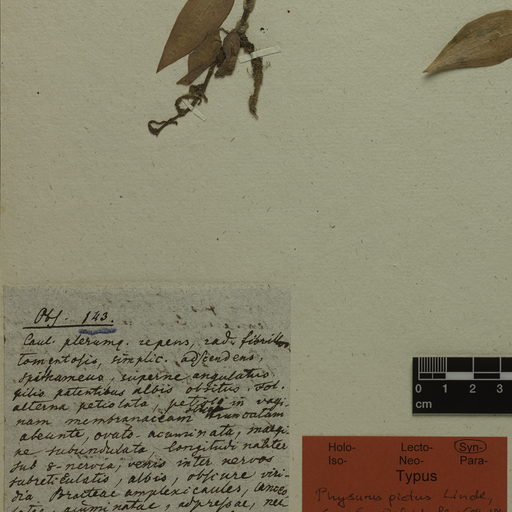 Obs. 143.
Caul. plerumq. repens, rad. fibrillos
tomentosis, simplic. adscendens,
spithameus, superne angulatus
pilis patentibus albis obsitus. Fol.
alterna petiolata, petiolo in vagi
nam membranaceam truncatam
abeunte, ovato-acuminata, margi
ne subundulata, longitudinaliter
sub 5-nervia; venis inter nervos
subreticulatis, albis, obscure viri-
dia. Bracteae amplexicaules, lanceo
latae, acuminatae, adpressae, nei
0 1 2 3
cm
Holo- Lecto- Syn-
Iso- Neo- Para-
Typus
Physurus pictus Lindl.